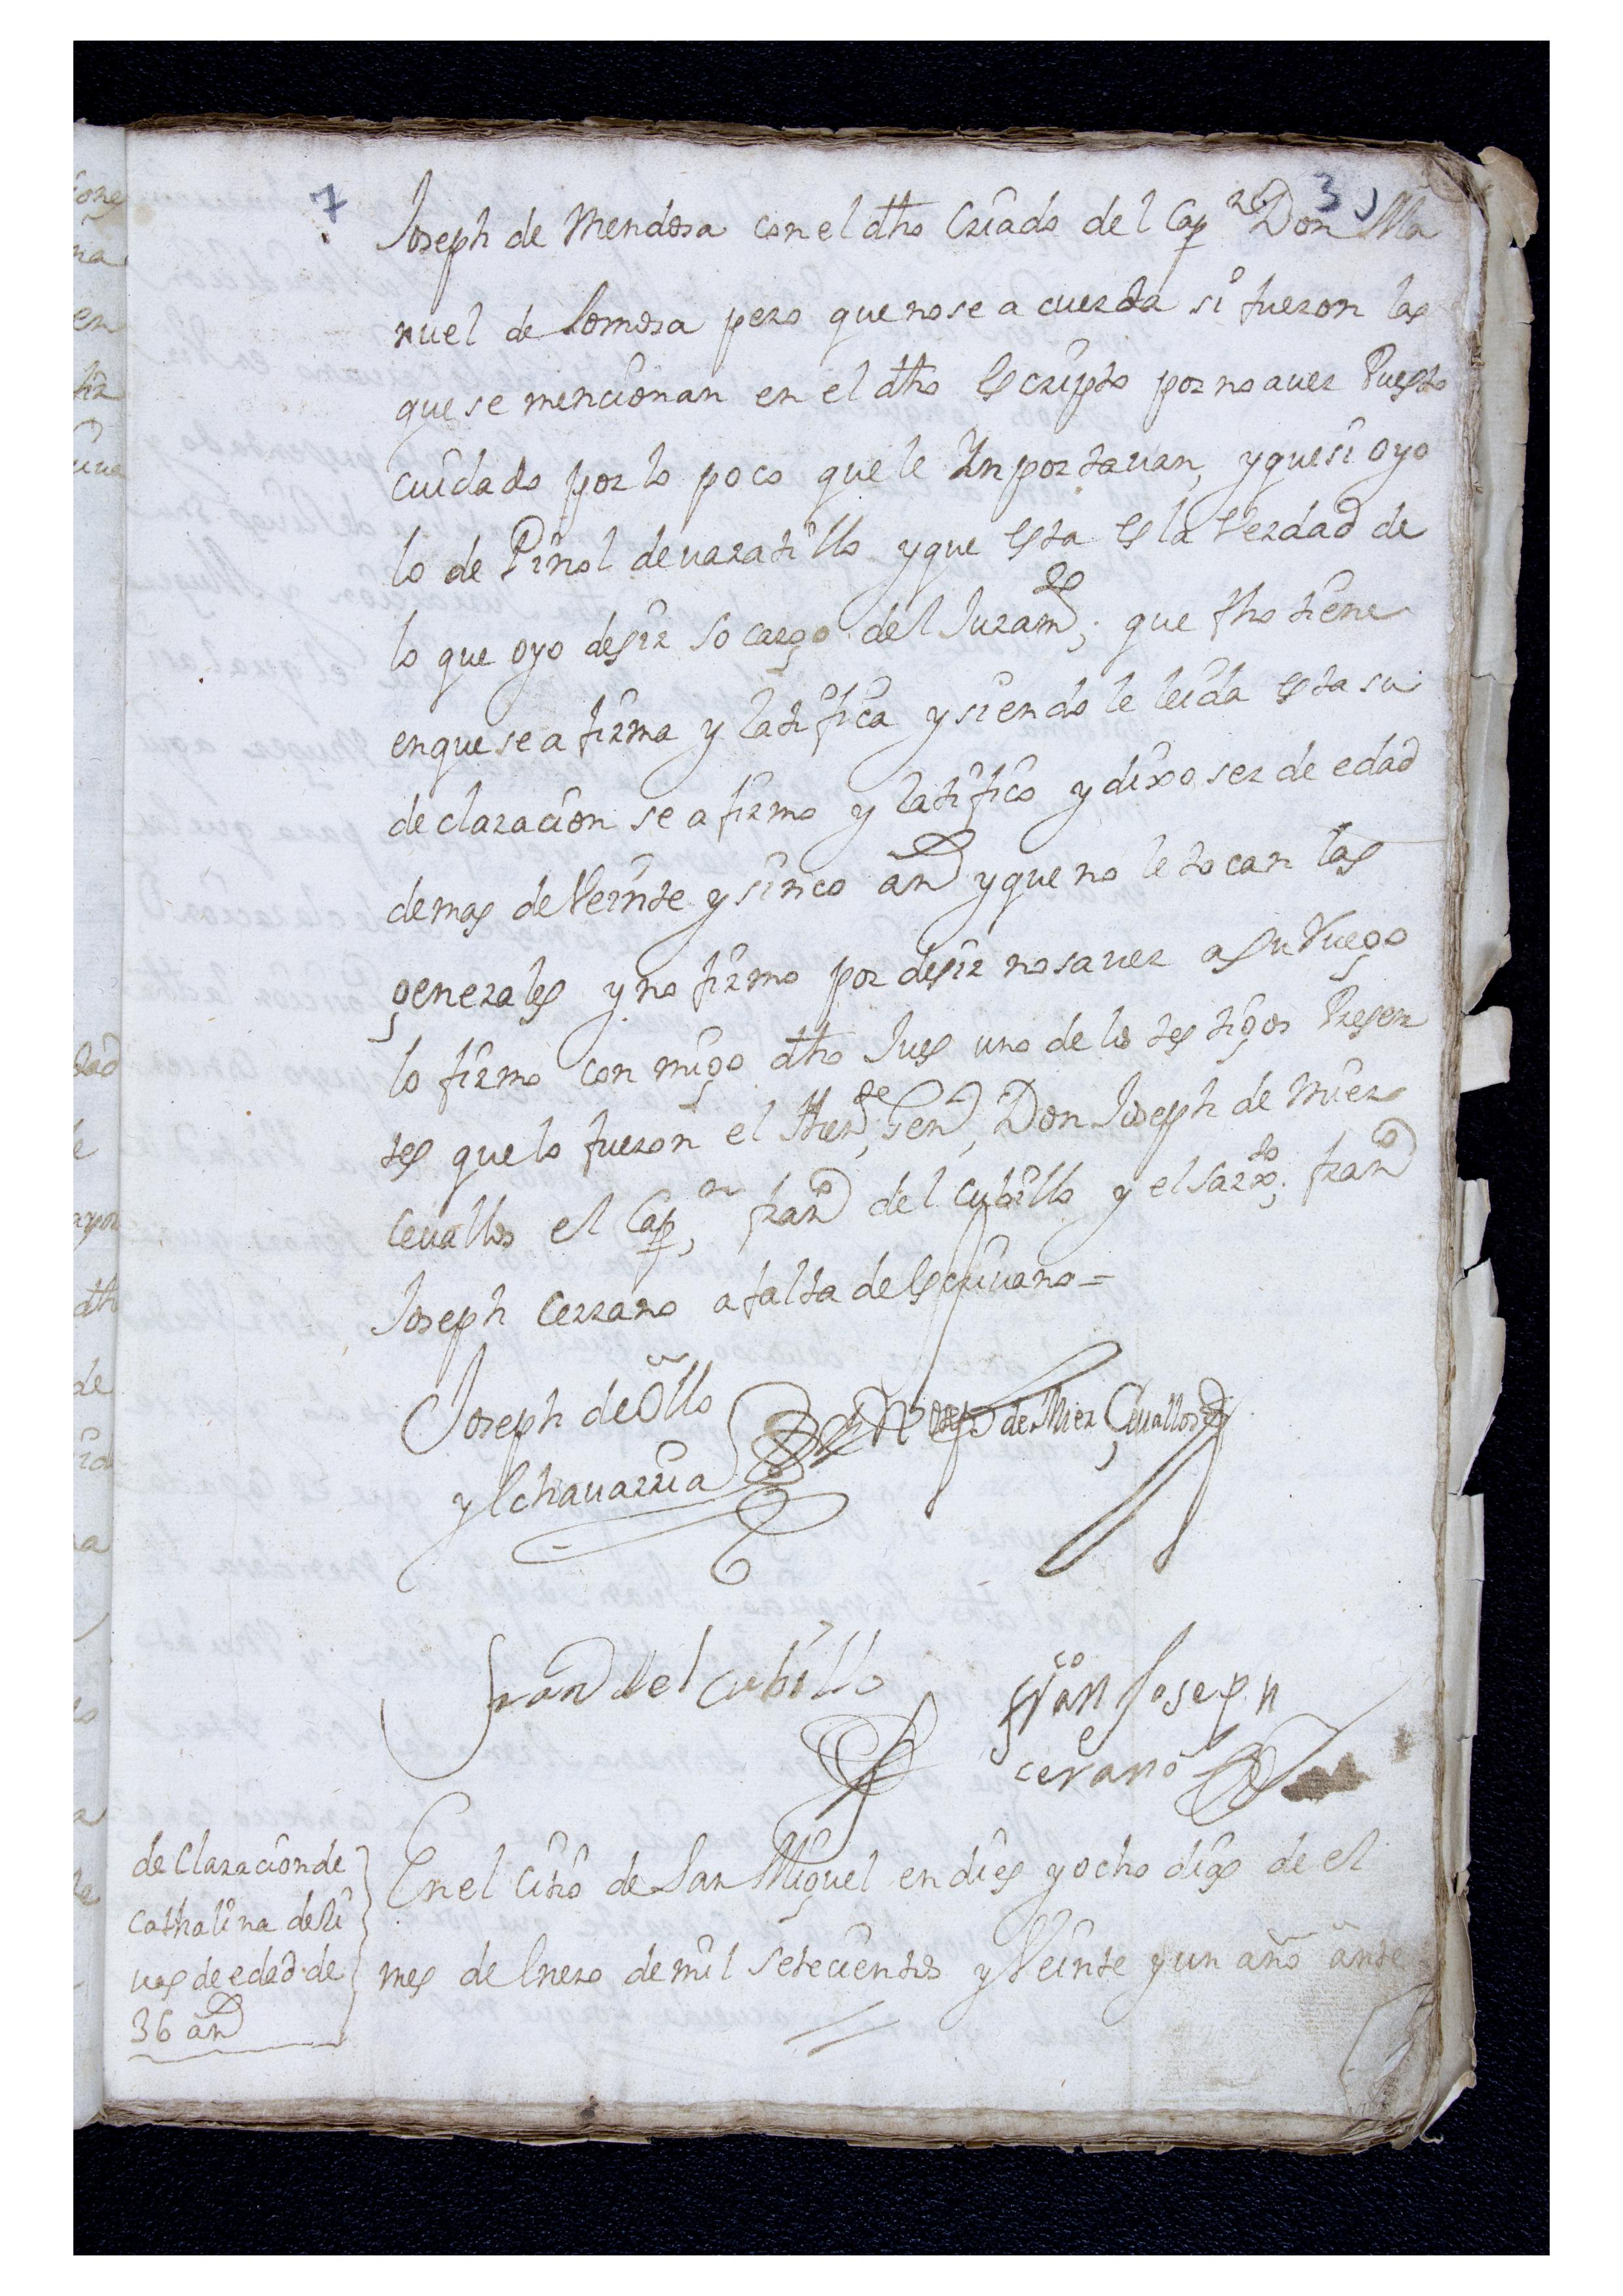 7
3
Joseph de Mendosa con el dho Criado de l Cap.n Don Ma
nuel de Somosa pero que no se a cuerda si fueron las
que se mencionan en el dho escripto por no auer Puesto
cuidado por lo poco que le Inportauan, y que si oyo
lo de Pinol de uaratillo y que esta es la Verdad de
lo que oyo desir so cargo del Juram.to, que fho tiene
en que se a firma y ratifica y siendo le leida esta su
declaracion se a firmo y ratifico y dixo ser de edad
de mas de Veinte y sinco an.s y que no le tocan las
generales y no firmo por desir no sauer a su Ruego
lo firmo con migo dho Jues uno de los testigos Presen
tes que lo fueron el then.te Gen.l Don Joseph de Mier
ceuallos el Cap.n fran.co del cubillo y el sarx.to fran.co
Joseph cerrano a falta de escriuano =
Joseph de Ollo
y Echauarria
Joseph de Mier Ceuallos
Fran.co del cubillo
fran.co Joseph
cerano
de claracion de
Cathalina de Ri
uas de edad de
36 an.s
En el citio de San Miguel en dies y ocho dias de el
mes de Enero de mil setecientos y Veinte y un año ante